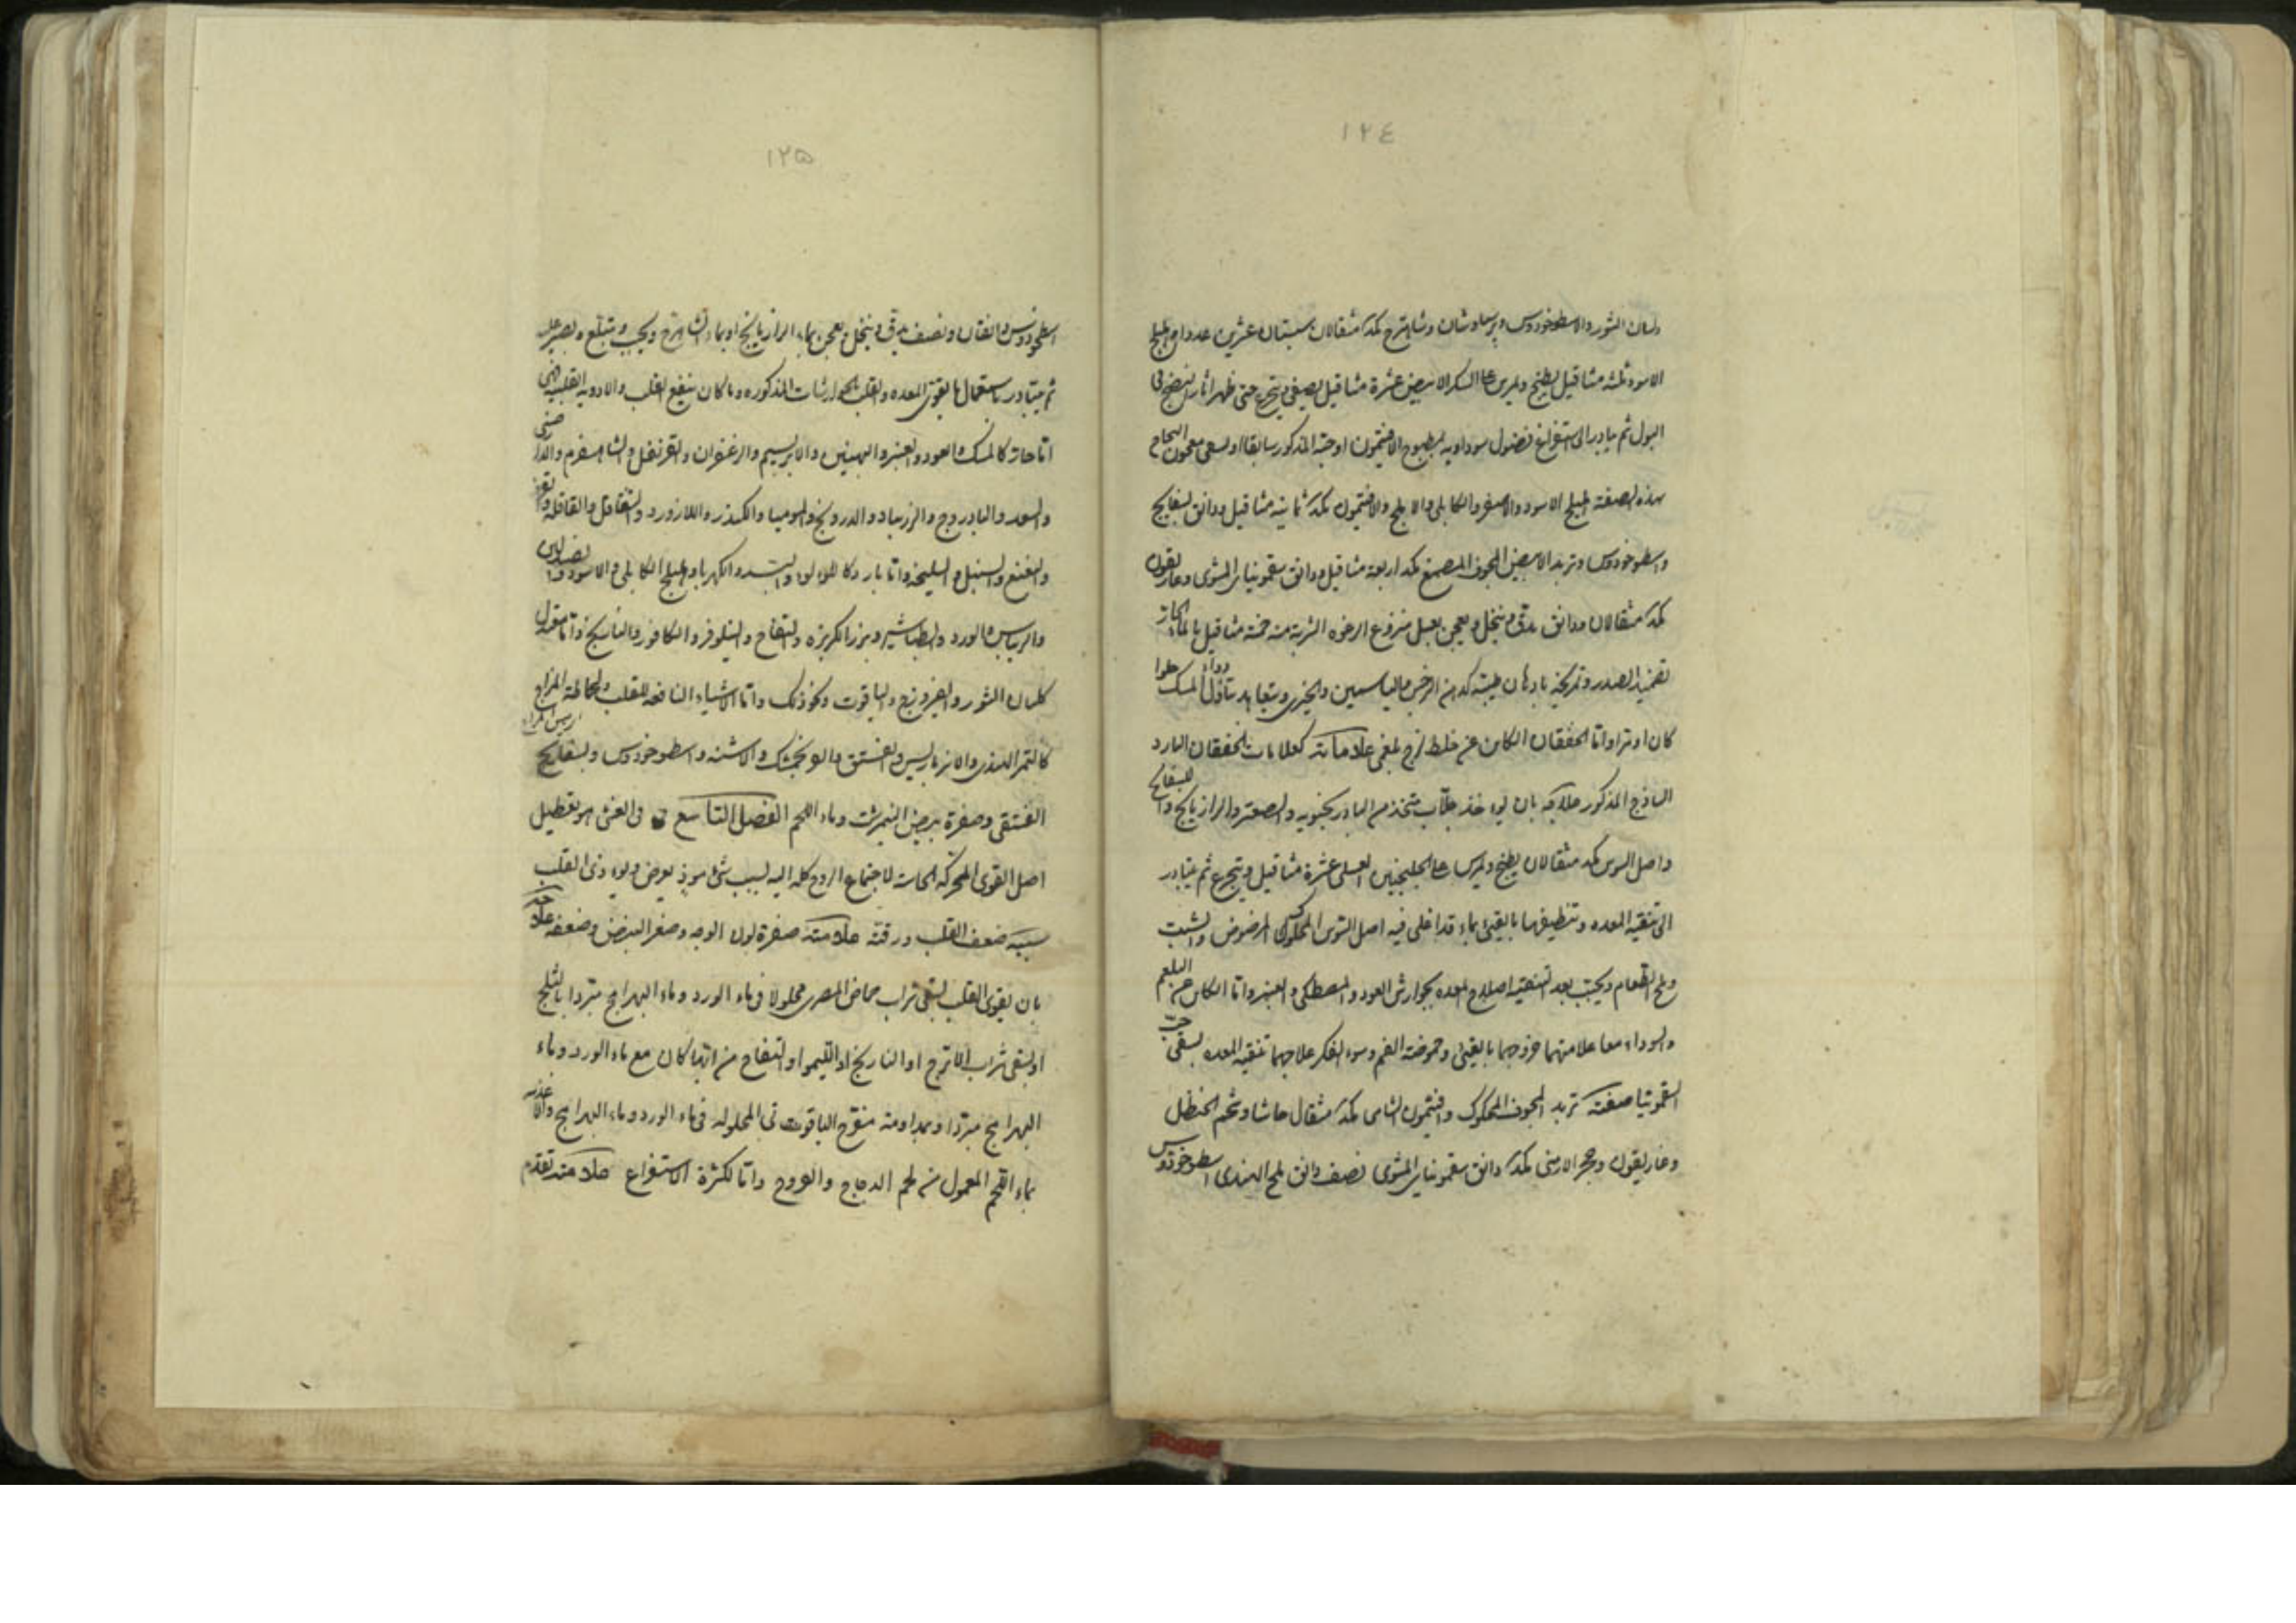 ١٢٤
ولسان الثور والاسطوخودوس وبرسياوشان وشاهترج مكد مثقالان سبستان عشرين عددا هليلج
الاسود ثلثه مثاقيل يطبخ ويمرس عا السكر الابيض عشرة مثاقيل يصفى ويتجرع حتى ظهر اثار النضج فى
البول ثم يبادر الى استفراغ فضول سوداويه بمطبوخ الافتيمون او حبه المذكور سابقا او يسقى معجون النجاح
بهذه الصفة هليلج الاسود والاصفر والكابلى والابلج والافتيمون مكد ثمانية مثاقيل ودانق بسفايج
واسطوخودوس وتربد الابيض المجوف المصمغ مكد اربعة مثاقيل ودانق سقمونيا المشوى وغاريقون
مكد مثقالان ودانق يدق وينخل ويعجن بعسل منزوع الرغوه الشربة منه خمسة مثاقيل بالماء الحار
تضميد الصدر وتمريخه بادهان طيبة كدهن النرجس والياسمين والخيرى ويتعاهد تناول دواء المسك حلوا
كان او مرا واما الخفقان الكاين عن خلط لزج بلغمى علاماته كعلامات الخفقان البارد
الساذج المذكور علاجه بان يوخذ جلاب متخذ من البادرنجبويه والصعتر والرازيانج والبسفايج
واصل السوس مكد مثقالان يطبخ ويمرس عا الجلنجبين العسلى عشرة مثاقيل ويتجرع ثم يتبادر
الى تنقيه المعده وتنظيفها بالقيئ بماء قد اغلى فيه اصل السوس المحكوك المرضوض والشبت
وملح الطعام ويجب بعد التنقيه اصلاح المعده بجوارش العود والمصطكى والعنبر واما الكاين عن البلغم
والسوداء معا علامتهما خروجهما بالقيئ وحموضة الفم وسوء الفكر علاجهما تنقيه المعده بسقى حب
السقمونيا صفته تربد المجوف المحكوك وافتيمون الشامى مكد مثقال حاشا وشحم الحنظل
وغاريقون وحجر الارمنى مكد دانق سقمونيا المشوى نصف دانق ملح الهندى اسطوخودوس
١٢۵
اسطوخودوس دانقان ونصف يدق وينخل ويعجن بماء الرازيانج او بماء الشاهترج ويحبب ويبتلع ويصبر عليه
ثم يتبادر باستعمال ما يقوى المعده والقلب كالجوارشات المذكوره وما كان ينفع القلب والادويه القلبيه فهى
اما حاره كالمسك والعود والعنبر والبهمنين والابريسم والزعفران والقرنفل والشاهسفرم والدارصينى
والسعد والبادروج والزرنباد والدرونج والموميا والكندر واللازورد والشقاقل والقاقله
والنعنع والسنبل والسليخه واما بارد كاللولو والبسد والكهربا وهليلج الكابلى والاسود
والريباس والورد والطباشير وبزر الكزبره والتفاح والنيلوفر والكافور والنارنج واما معتدل
كلسان الثور والفيروزج والياقوت ونحو ذلك واما الاشياء النافعه للقلب
كالتمر الهندى والانبرباريس والفستق والفرنجمشك والاشنه واسطوخودوس وبسفايج
الفستقى وصفرة بيض النيمرشت وماء اللحم الفصل التاسع فى الغشى هو تعطيل
اصل القوى المحركه الحاسه لاجتماع الروح كله اليه لسبب شئ موذ يعرض
سببه ضعف القلب ورقته علامته صفرة لون الوجه وصغر النبض وضعفه علاجه
بان يقوى القلب بسقى شراب حماض المصرى محلولا فى ماء الورد وماء البهرامج مبردا بالثلج
او يسقى شراب الاترج او النارنج او الليمو او التفاح من ايها كان مع ماء الورد وماء
البهرامج مبردا وبمداومة مفرح الياقوت المحلوله فى ماء الورد وماء البهرامج والاغذيه
بماء اللحم المعمول من لحم الدجاج والفروج واما لكثرة الاستفراغ علامته تقدم